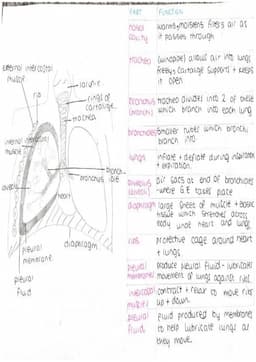 PART FUNCTION
nasal cavity warms, moistens, filters air as
it passes through
trachea (windpipe) allows air into lungs
freely, cartilage supports + keeps
it open
bronchus (bronchi) trachea divides into 2 of these
which branch into each lung
bronchioles smaller tubes which bronchi
branch into
lungs inflate + deflate during inspiration
+ expiration.
alveolus (alveoli) air sacs at end of bronchioles
- where G.E takes place
diaphragm large sheet of muscle + elastic
tissue which stretches across
body under heart and lungs
ribs protective cage around heart
+ lungs
pleural membranes produce pleural fluid - lubricates
movement of lungs against ribs
intercostal muscles contract + relax to move ribs
up + down.
pleural fluid fluid produced by membranes
to help lubricate lungs as
they move.
external intercostal
muscle
rib
larynx
rings of
cartilage
trachea
internal intercostal
muscle
bronchus
alveoli
heart
diaphragm
pleural
membrane
pleural
fluid